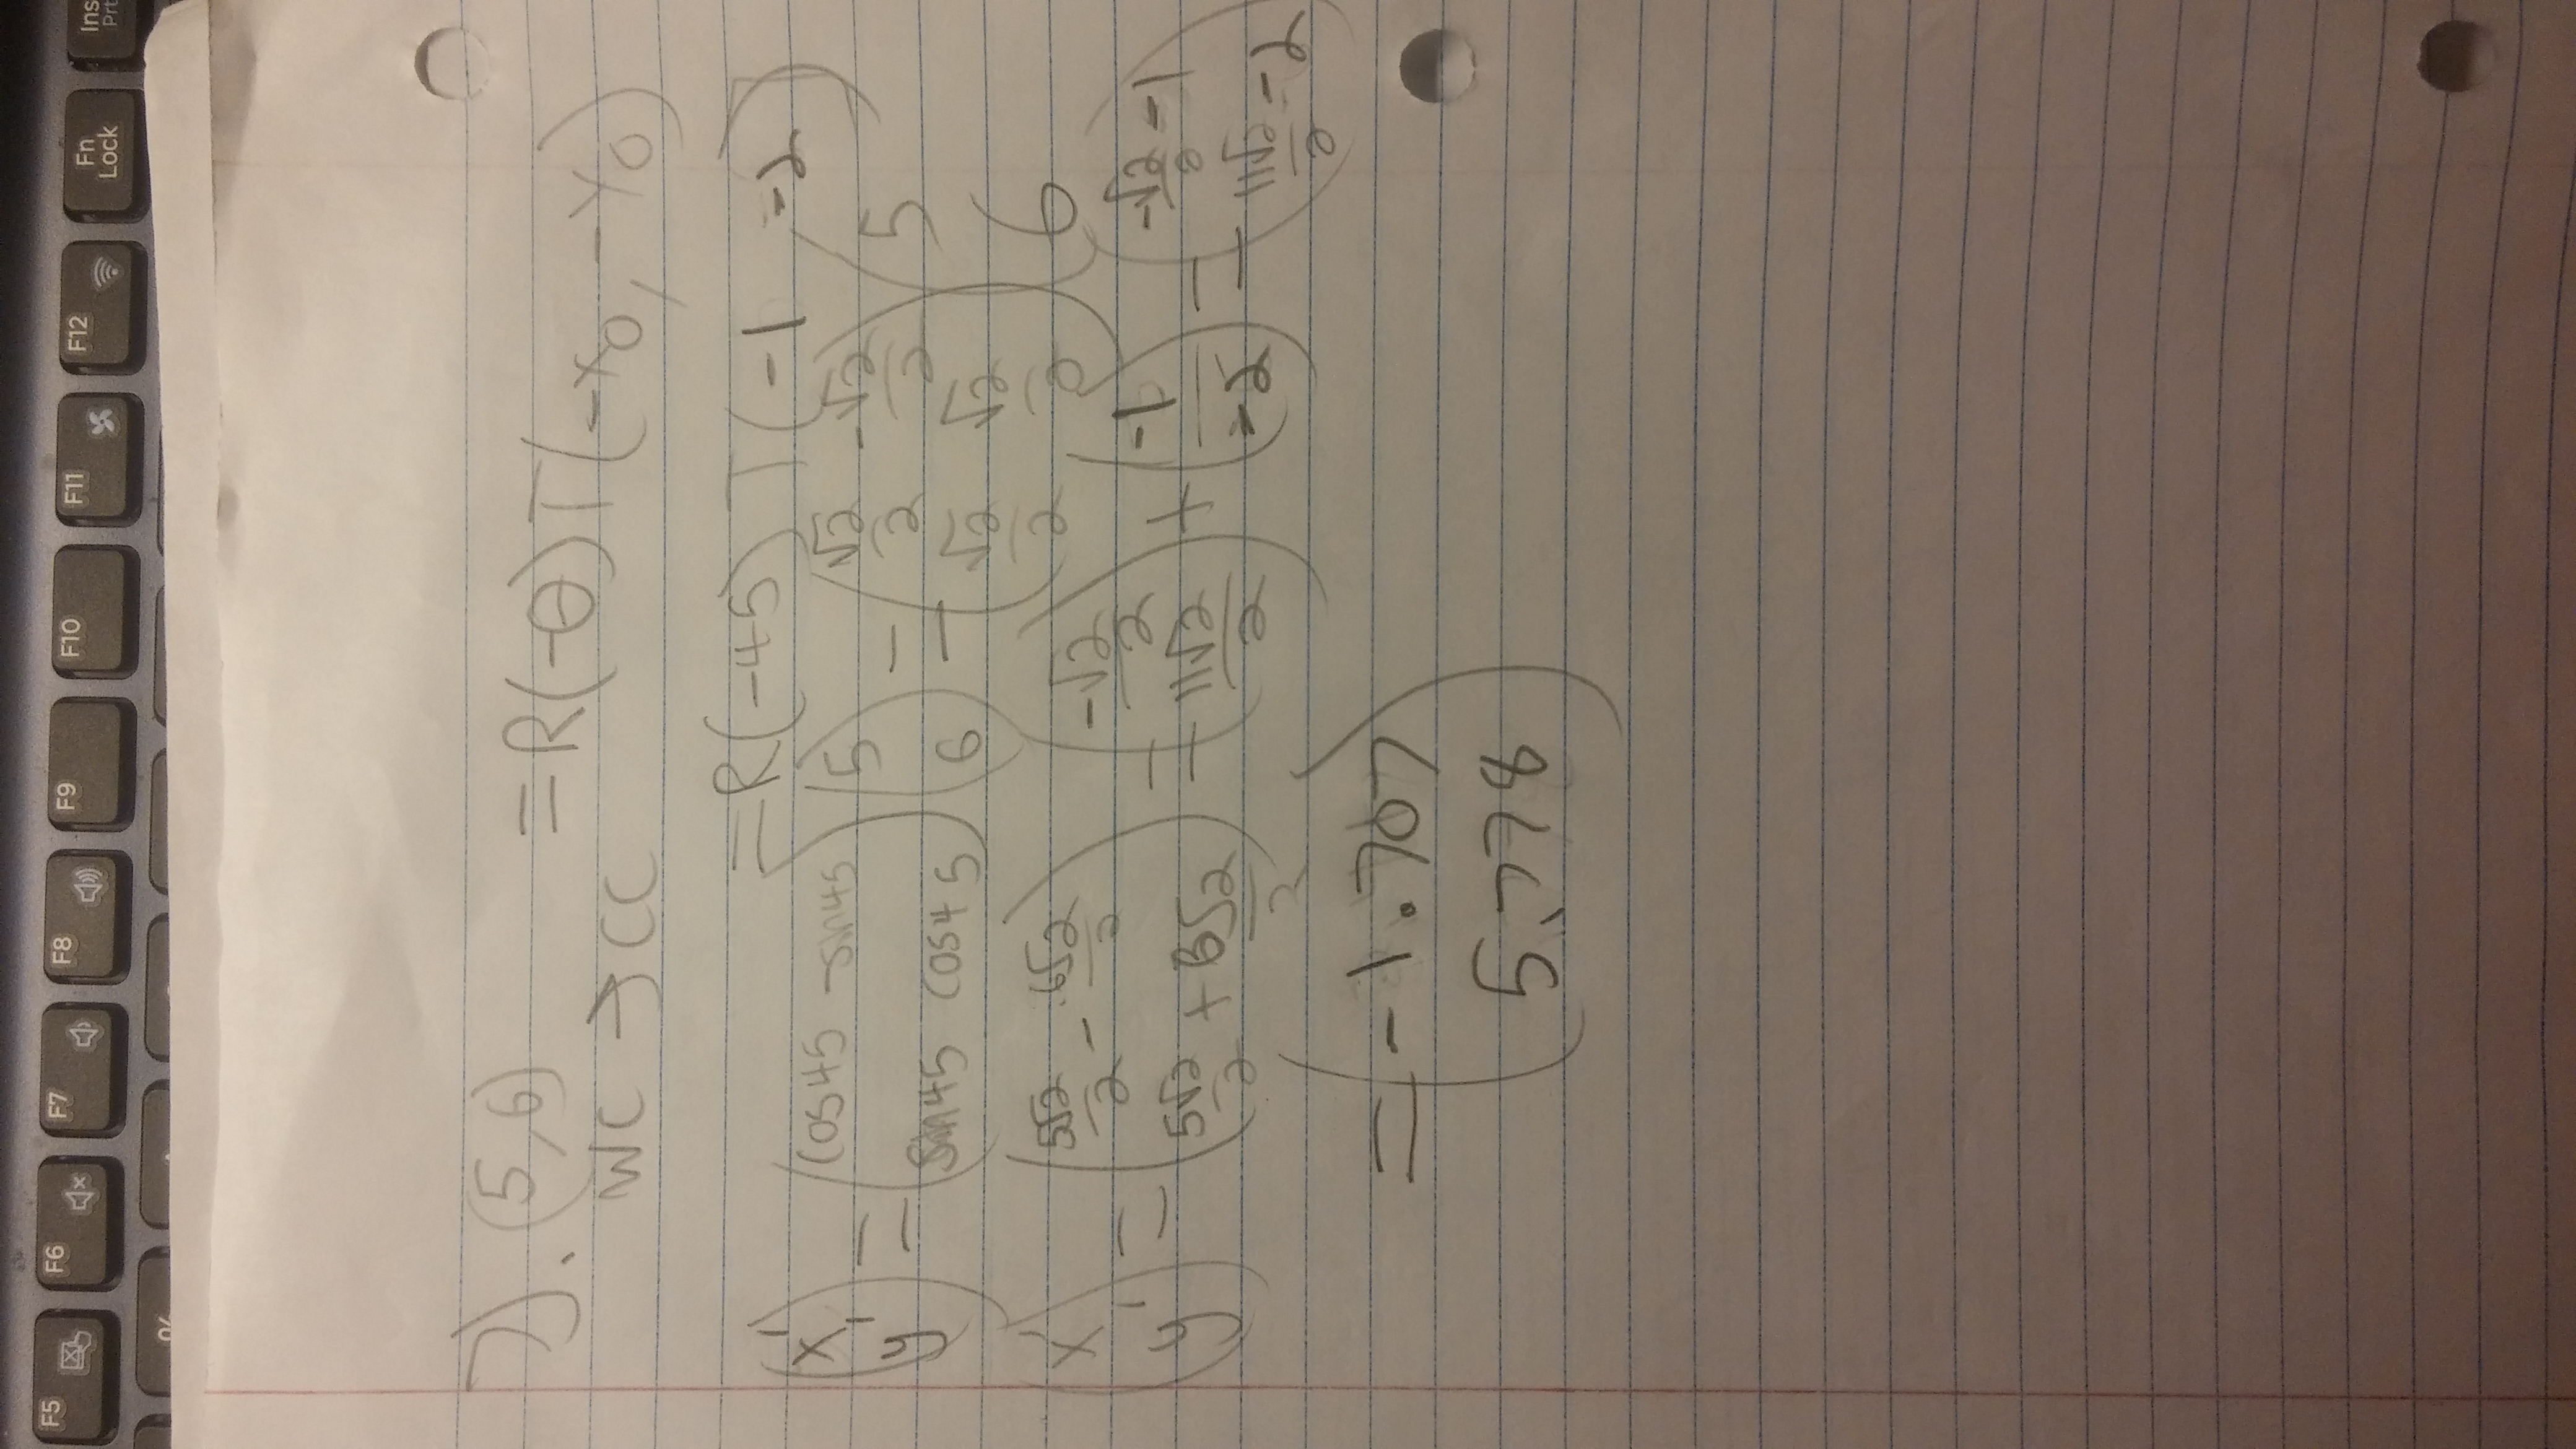 F5 F6 F7 F8 F9 F10 F11 F12 Fn Lock Ins Prt
%
7). (5,6) = R(-θ)T(-x₀, -y₀)
WC → CC
= R(-45) T(-1 -2)
(x' y') = (cos45 -sin45 sin45 cos45) (5 6) = (√2/2 -√2/2 √2/2 √2/2) (5 6)
(x' y') = (5√2/2 - 6√2/2 5√2/2 + 6√2/2) = (-√2/2 11√2/2) + (-1 -2) = (-√2/2 -1 11√2/2 -2)
= (-1.707
5.778)